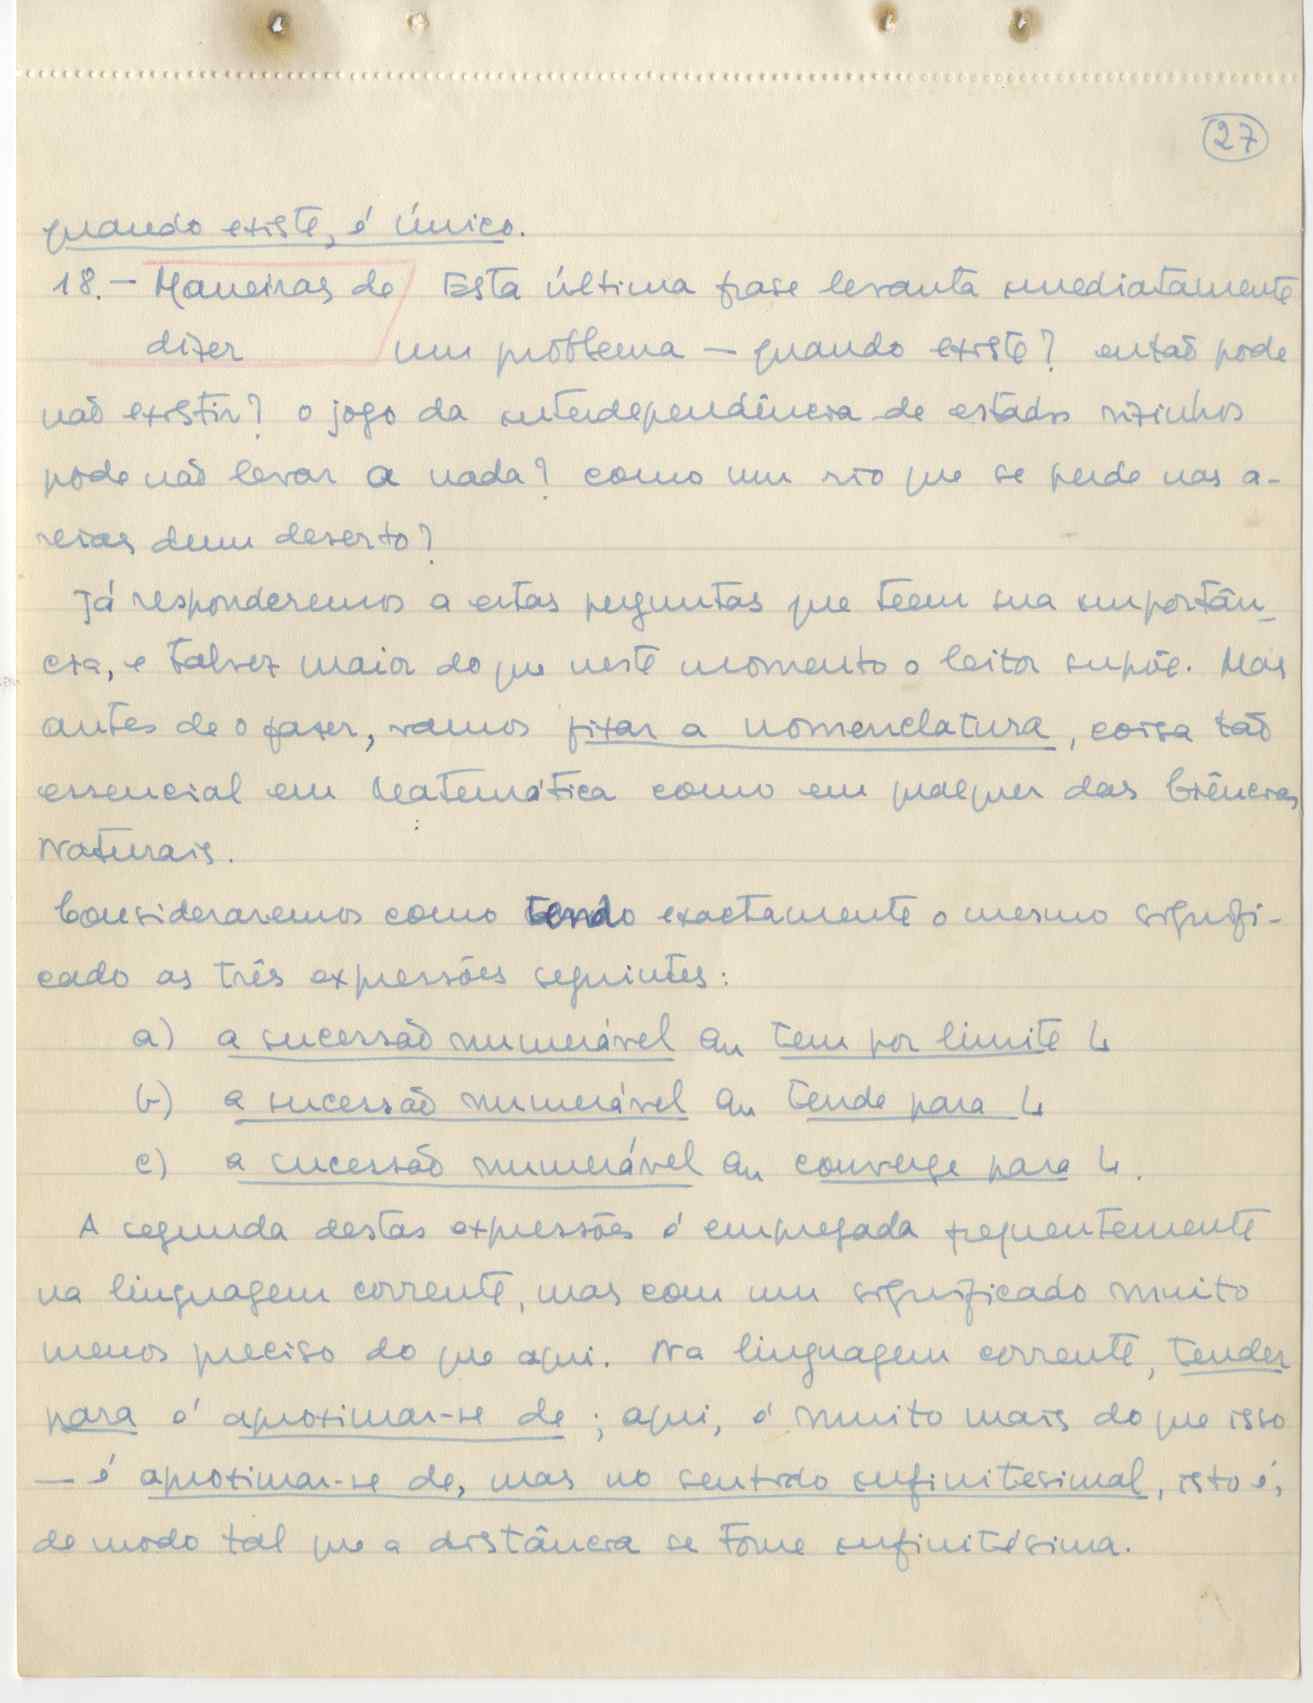 27
quando existe, é único.
18.- Maneiras de Esta última frase levanta imediatamente
dizer um problema — quando existe? então pode
não existir? o jogo da interdependência de estados vizinhos
pode não levar a nada? como um rio que se perde nas a-
reias dum deserto?
Já responderemos a estas perguntas que teem sua importân-
cia, e talvez maior do que neste momento o leitor supõe. Mas
antes de o fazer, vamos fixar a nomenclatura, coisa tão
essencial em Matemática como em qualquer das Ciências
Naturais.
Consideraremos como tendo exactamente o mesmo signifi-
cado as três expressões seguintes:
a) a sucessão numerável an tem por limite L
b) a sucessão numerável an tende para L
c) a sucessão numerável an converge para L.
A segunda destas expressões é empregada frequentemente
na linguagem corrente, mas com um significado muito
menos preciso do que aqui. Na linguagem corrente, tender
para é aproximar-se de; aqui, é muito mais do que isso
— é aproximar-se de, mas no sentido infinitesimal, isto é,
de modo tal que a distância se torne infinitésima.